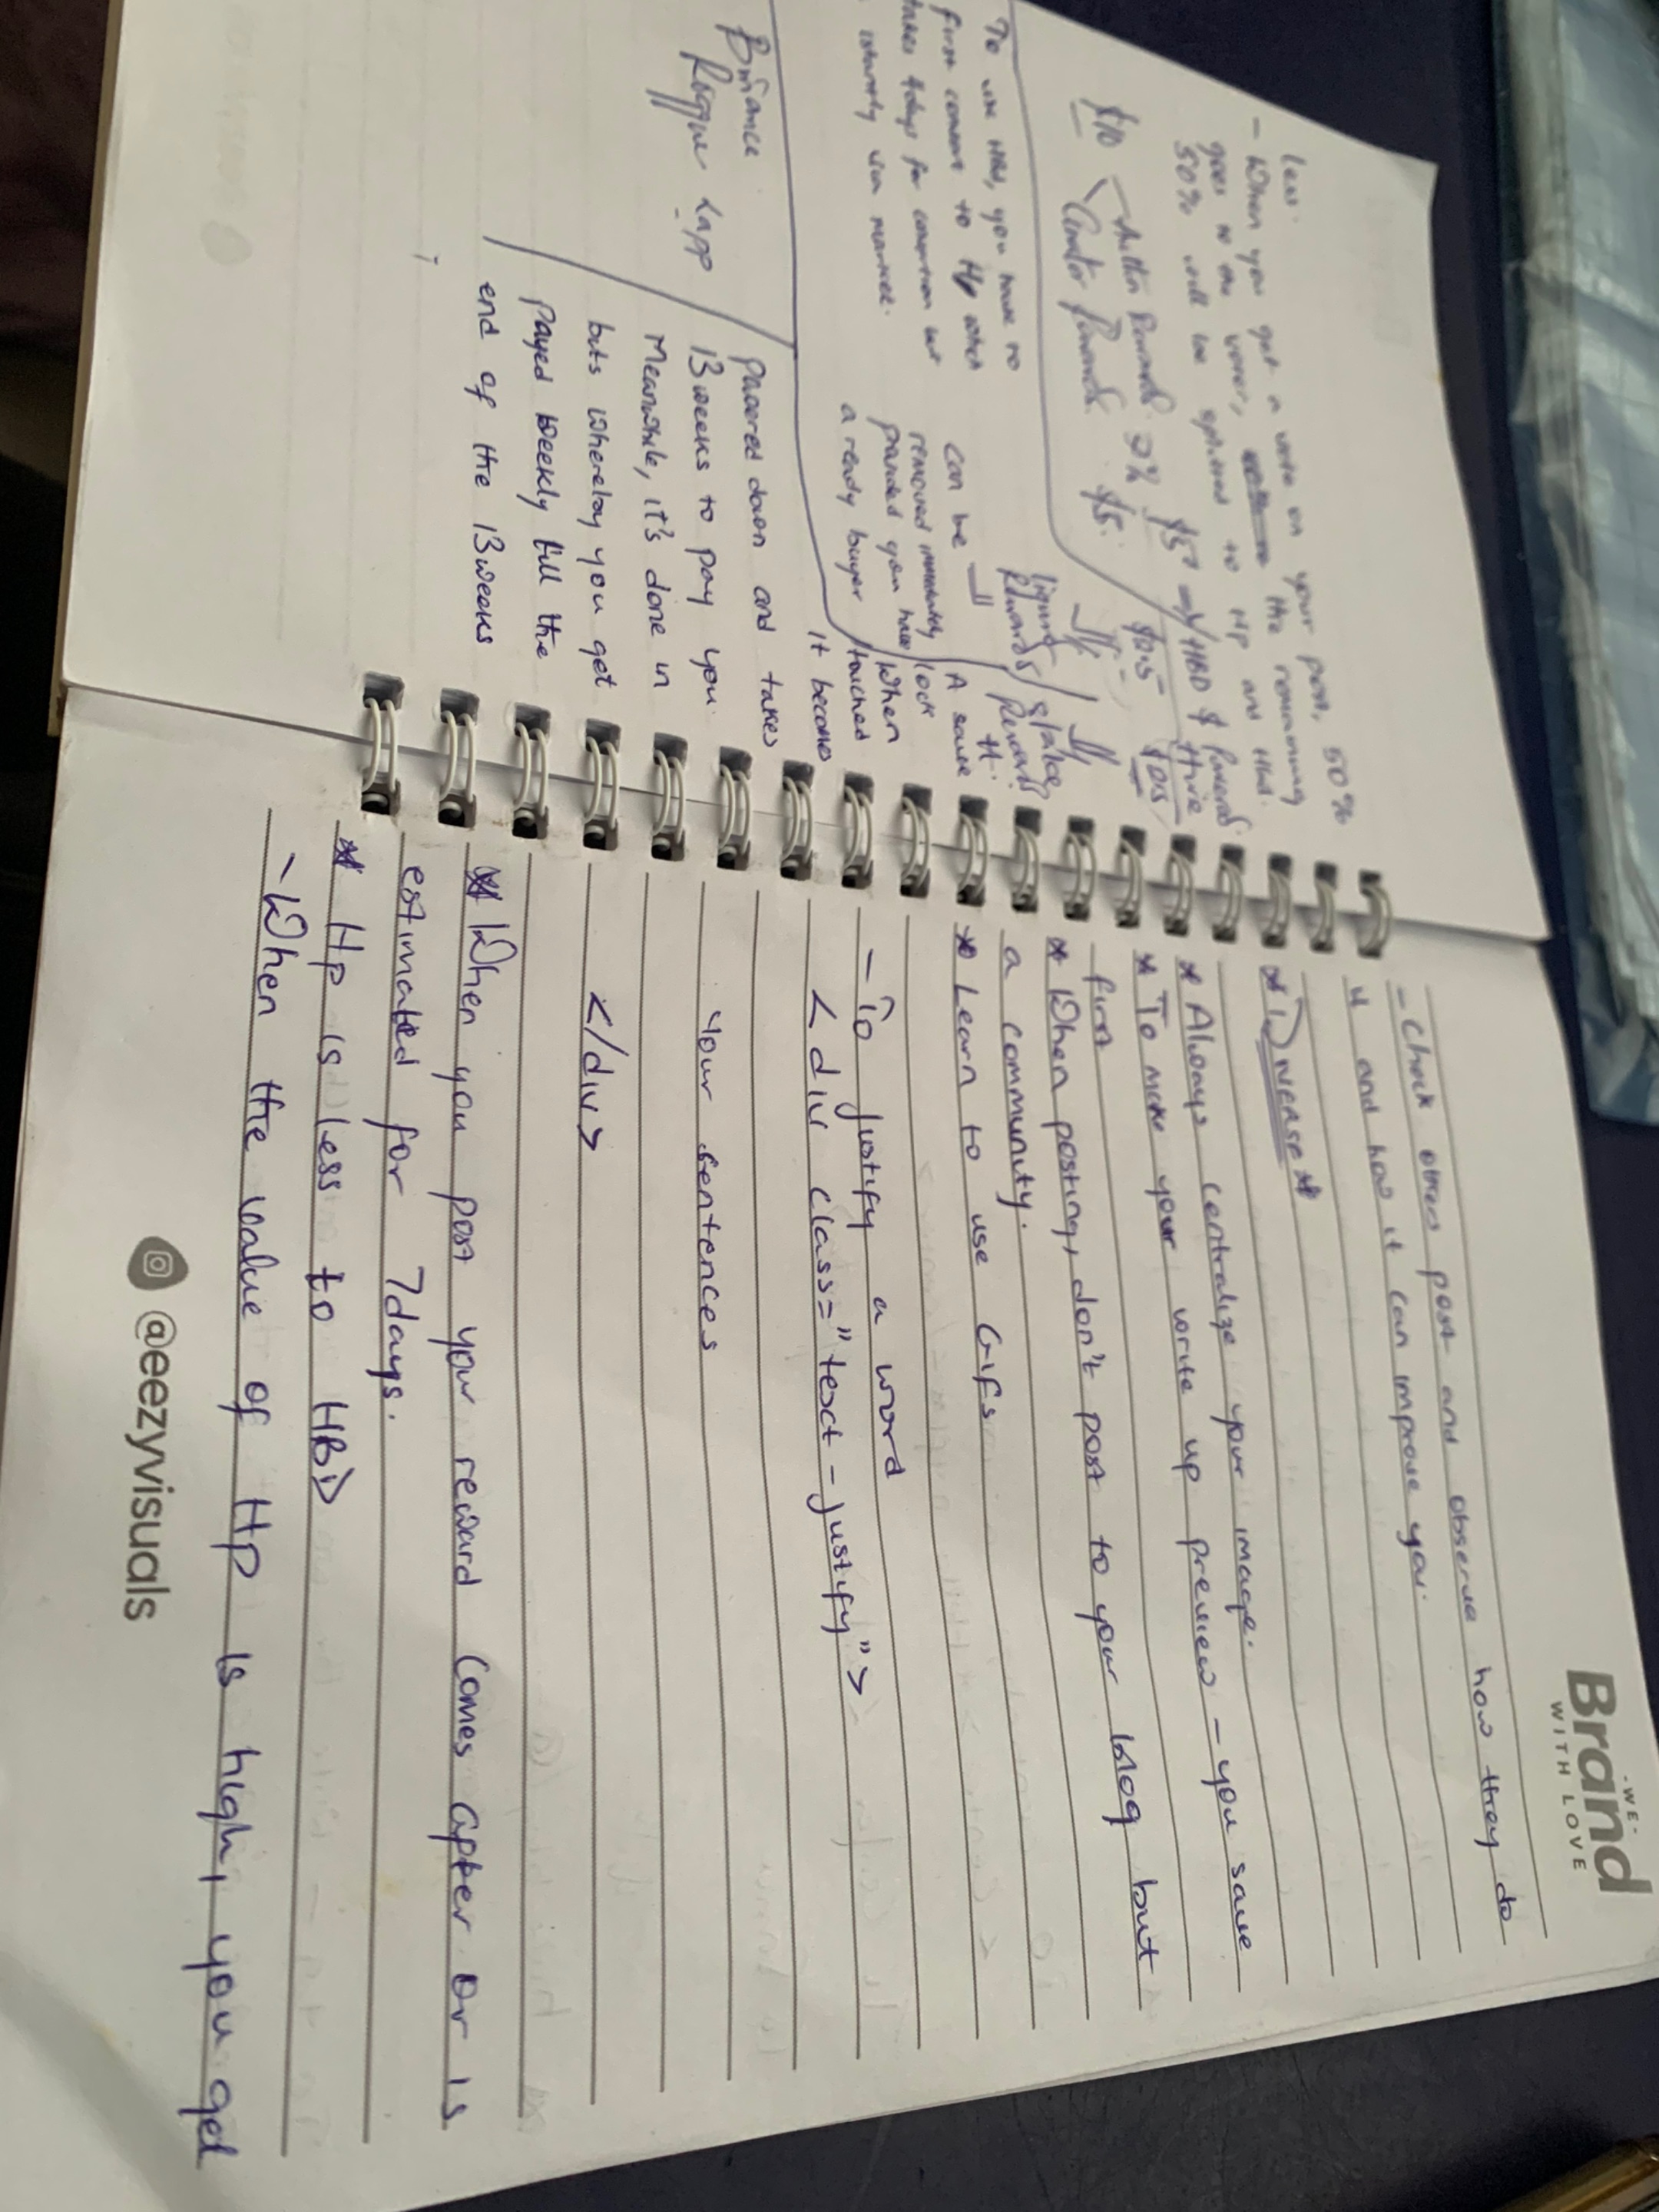 -WE-
Brand
WITH LOVE
- Check others post and observe how they do
it and how it can improve you.
* Inverse *
* Always centralize your image.
* To make your write up preview - you save
first
* When posting, don't post to your blog but
a community.
* Learn to use Gifs
- To justify a word
<div class="text-justify">
Your sentences
</div>
* When you post your reward comes after or is
estimated for 7days.
* Hp is less to HBD
- When the value of Hp is high, you get
@eezyvisuals
less.
- When you get a vote on your post, 50%
goes to the voter, the remaining
50% will be splitted to Hp and Hbd.
$10
Author Rewards 50% $5 HBD & Powered
Curator Rewards $5. $2.5 $2.5
Hive
liquid Rewards
stake Rewards
To use HBD, you have to
first convert to Hp which
takes 4days for conversion but
instantly via market.
can be
removed immediately
provided you have
a ready buyer
A save
lock
When
touched
it becomes
powered down and takes
13weeks to pay you.
Meanwhile, it's done in
bits whereby you get
payed weekly till the
end of the 13weeks
Binance